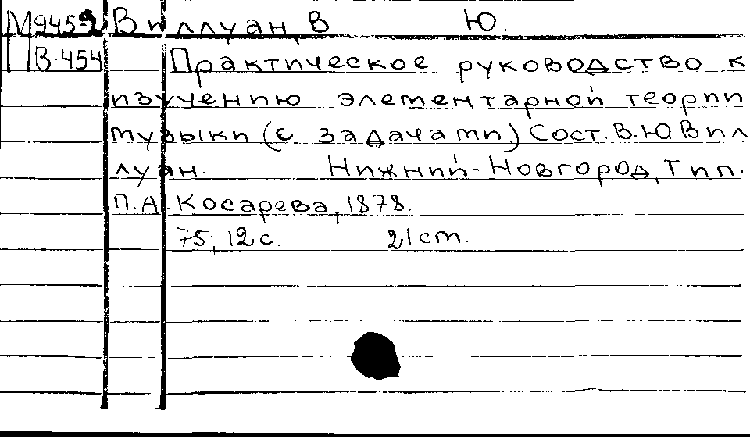 М9459 Виллуан, В Ю.
В-454 Практическое руководство к
изучению элементарной теории
музыки (с задачами) Сост. В.Ю Вил
луан. Нижний-Новгород, Тип.
П.А Косарева, 1878.
75, 12 с. 21 cm.